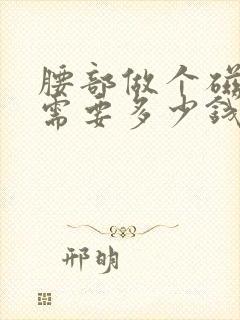 腰部做个磁
需要多少钱
邢明